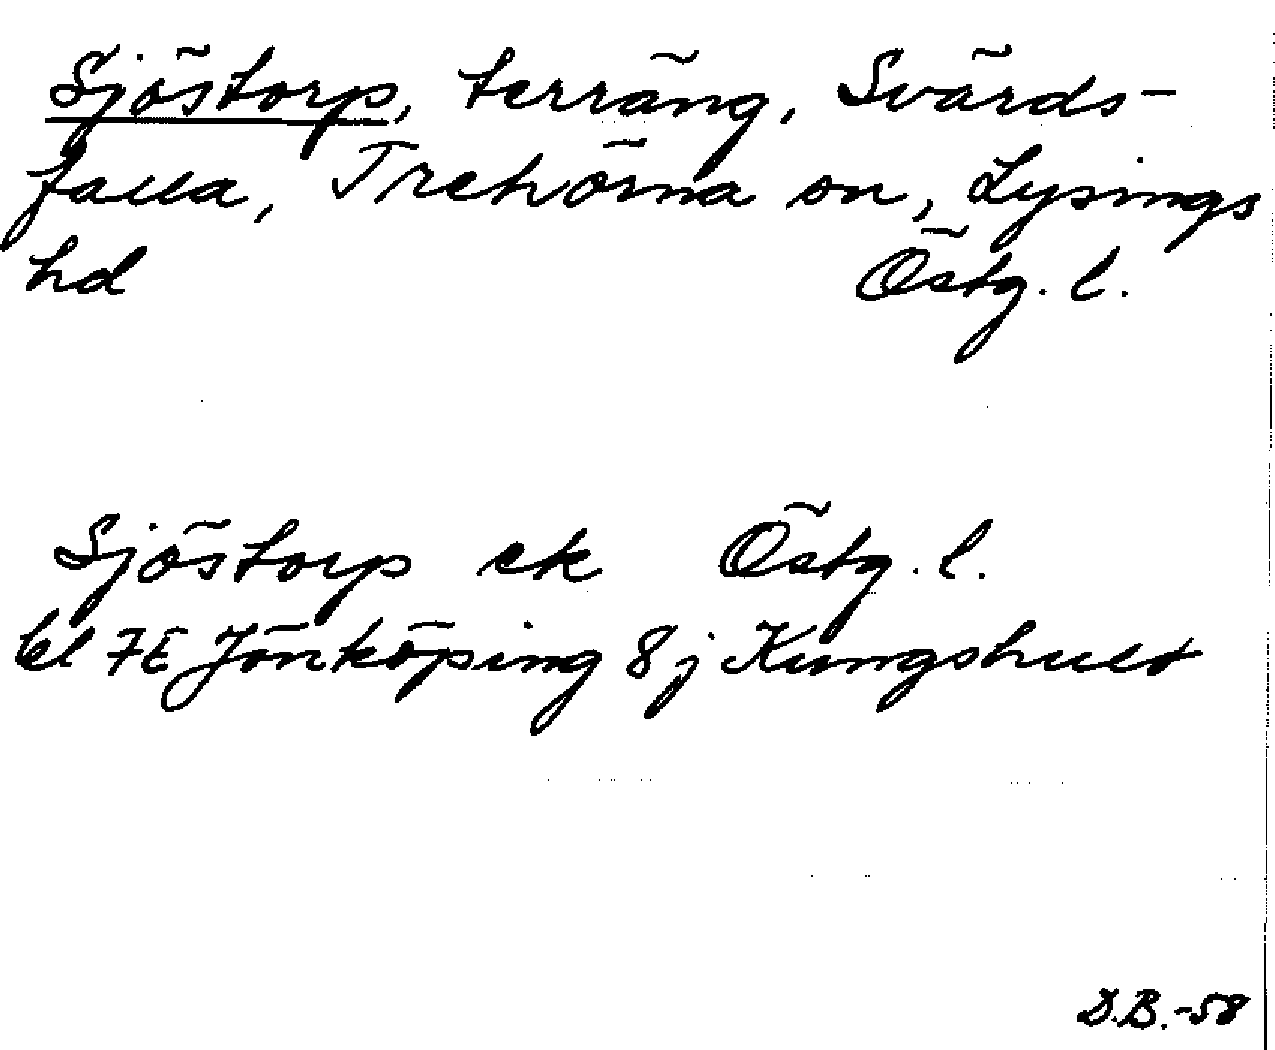 Sjöstorp, terräng, Svärds-
falla, Trehörna sn, Lysings
hd Östg. l.
Sjöstorp ek Östg. l.
bl 7E Jönköping 8j Kungshult
D.B.-58